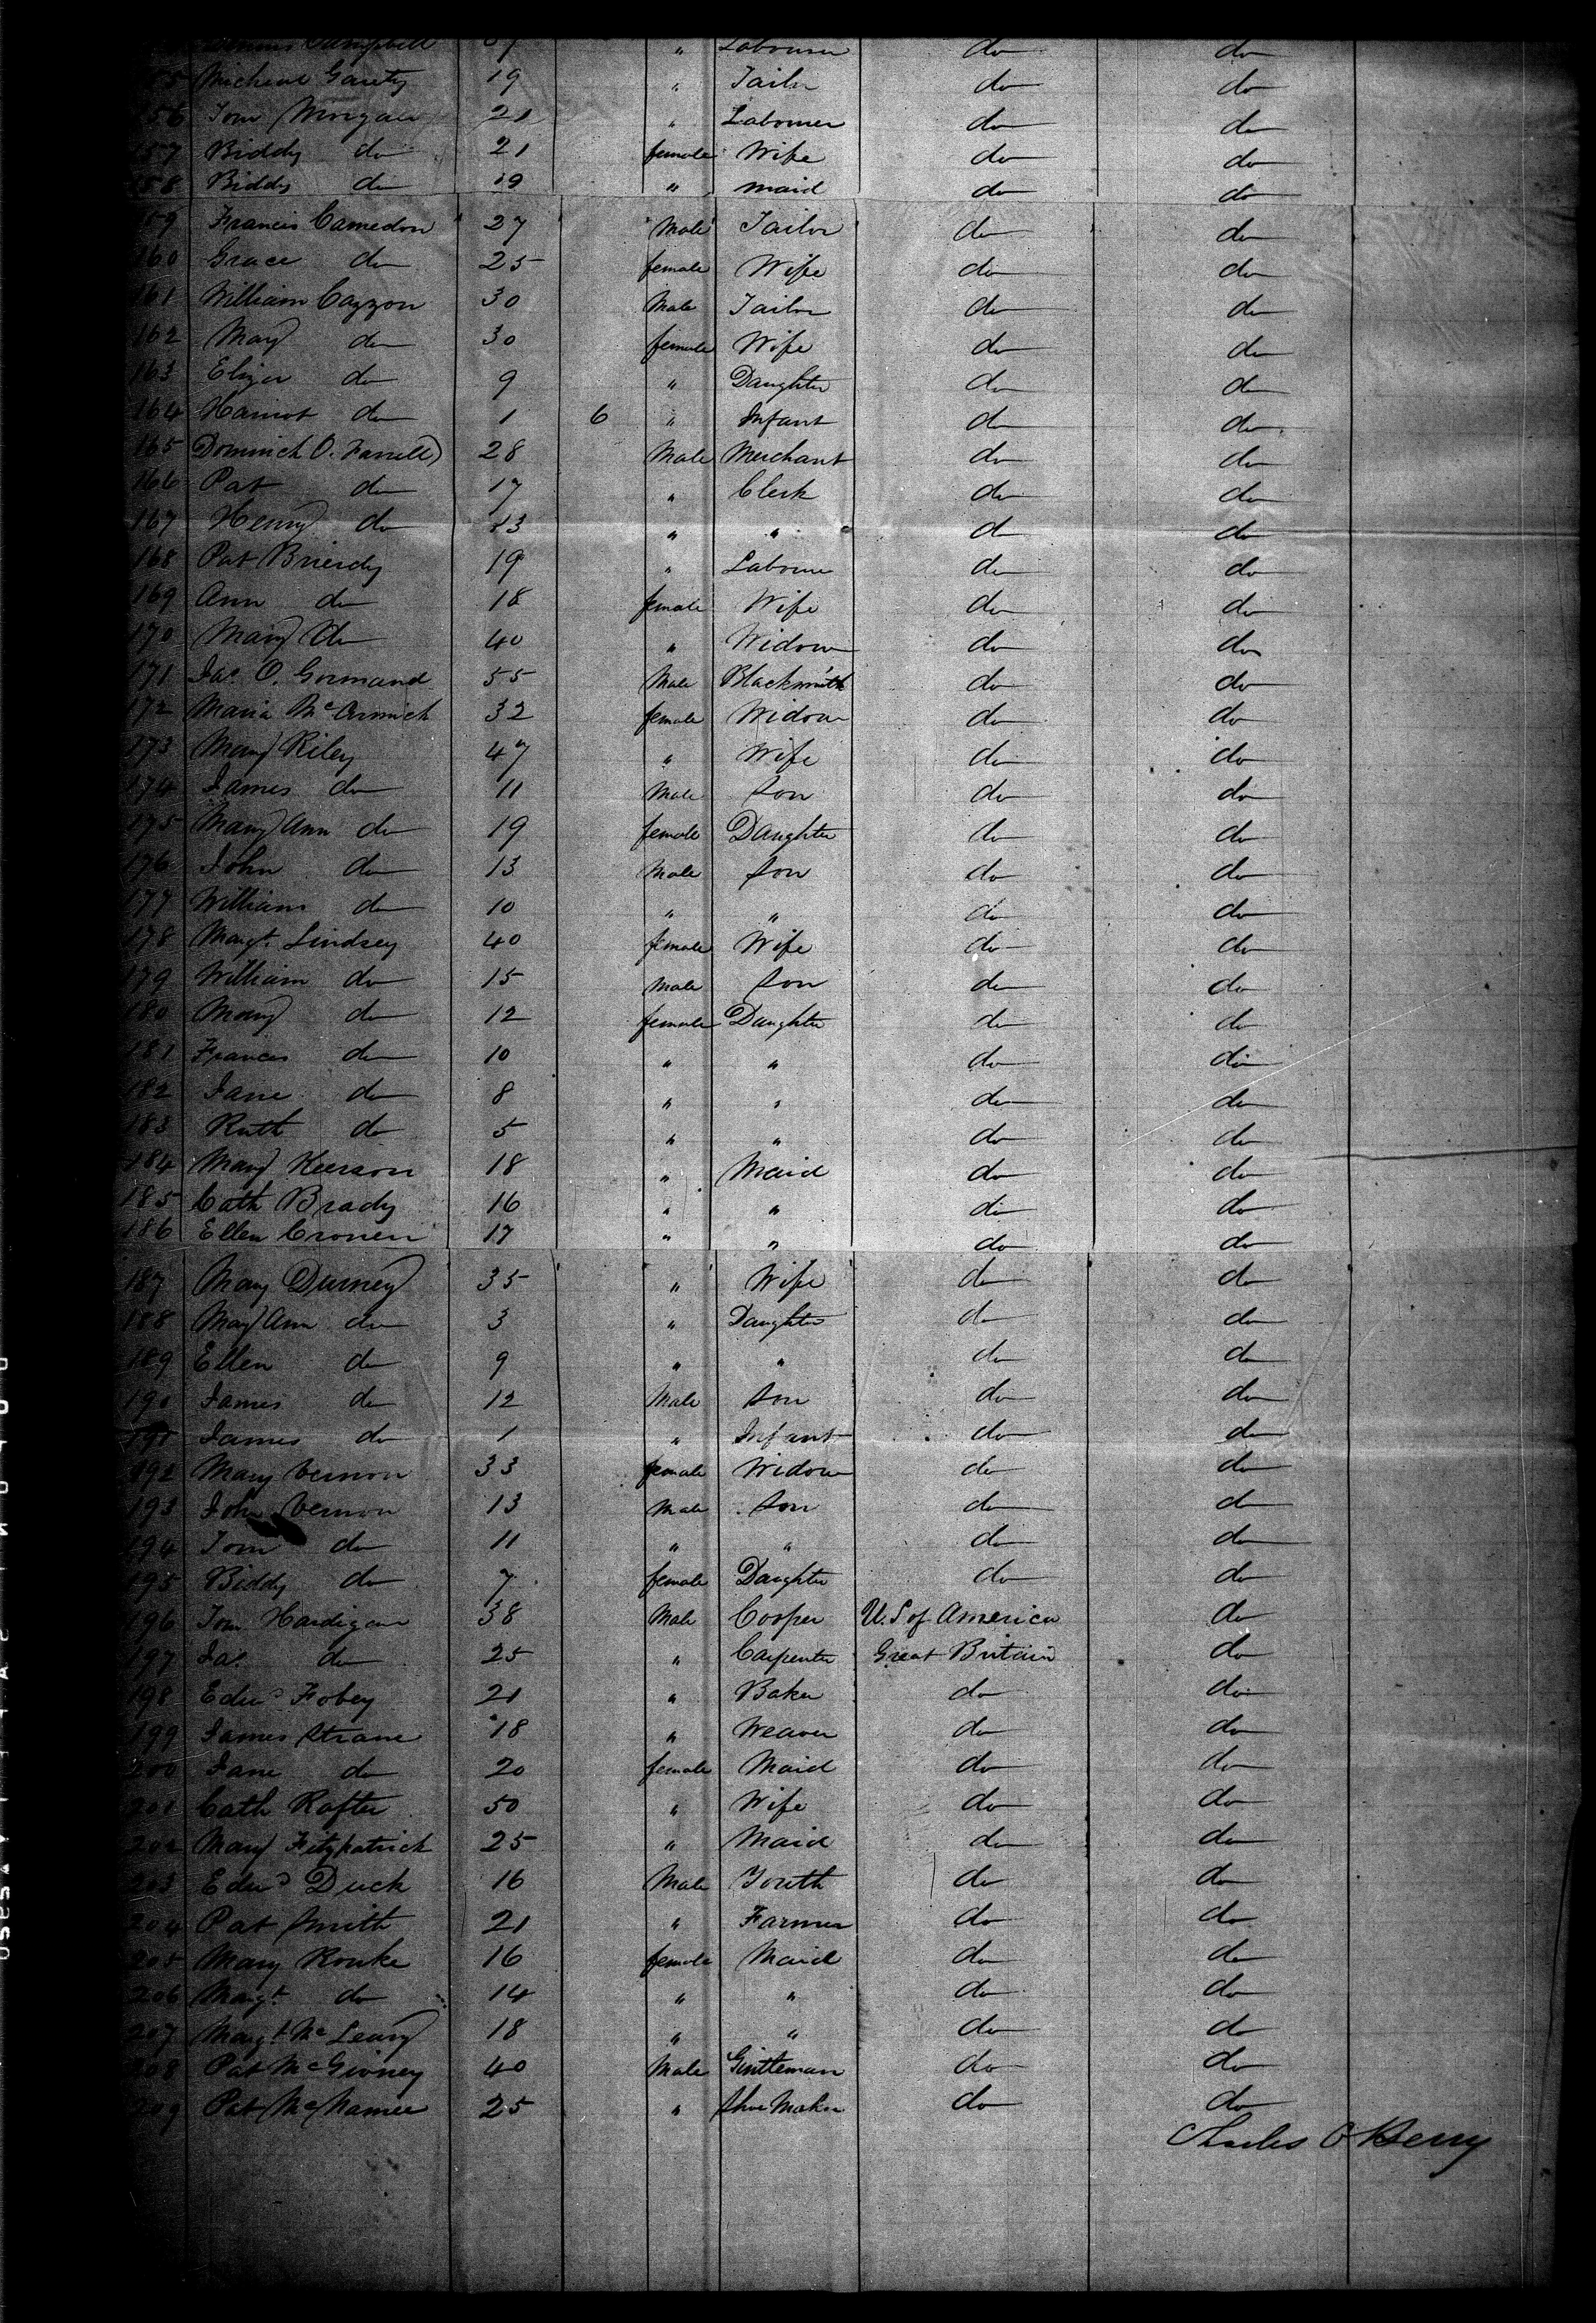 Dennis Campbell " Labourer do do
155 Micheal Gairty 19 " Tailor do do
156 Tom Morgan 21 " Labourer do do
157 Biddy do 21 female Wife do do
158 Biddy do 19 " maid do do
159 Francis Camedon 27 Male Tailor do do
160 Grace do 25 female Wife do do
161 William Cazzon 30 Male Tailor do do
162 Mary do 30 female Wife do do
163 Eliza do 9 " Daughter do do
164 Harriot do 1 6 " Infant do do
165 Dominick O. Farrell 28 Male Merchant do do
166 Pat do 17 " Clerk do do
167 Henry do 13 " " do do
168 Pat Brierdy 19 " Labourer do do
169 Ann do 18 female Wife do do
170 Mary do 40 " Widow do do
171 Jas. O. Gormand 55 Male Blacksmith do do
172 Maria McCormick 32 female Widow do do
173 Mary Riley 47 " Wife do do
174 James do 11 Male Son do do
175 Mary Ann do 19 female Daughter do do
176 John do 13 Male Son do do
177 William do 10 " " do do
178 Margt. Lindsey 40 female Wife do do
179 William do 15 Male Son do do
180 Mary do 12 female Daughter do do
181 Frances do 10 " " do do
182 Jane do 8 " " do do
183 Ruth do 5 " " do do
184 Mary Keerson 18 " Maid do do
185 Cath Brady 16 " " do do
186 Ellen Cronen 17 " " do do
187 Mary Durney 35 " Wife do do
188 Mary Ann do 3 " Daughter do do
189 Ellen do 9 " " do do
190 James do 12 Male Son do do
191 James do 1 " Infant do do
192 Mary Vernon 33 female Widow do do
193 John Vernon 13 Male Son do do
194 Tom do 11 " " do do
195 Biddy do 7 female Daughter do do
196 Tom Hardigan 38 Male Cooper U.S of America do
197 Jas. do 25 " Carpenter Great Britain do
198 Edwd Fobey 21 " Baker do do
199 James Strane 18 " Weaver do do
200 Jane do 20 female Maid do do
201 Cath Rafter 50 " Wife do do
202 Mary Fitzpatrick 25 " Maid do do
203 Edwd Duck 16 Male Youth do do
204 Pat Smith 21 " Farmer do do
205 Mary Rourke 16 female Maid do do
206 Margt. do 14 " " do do
207 Margt. McLeary 18 " " do do
208 Pat McGivney 40 Male Gentleman do do
209 Pat McNamee 25 " Shoe Maker do do
Charles O Berry